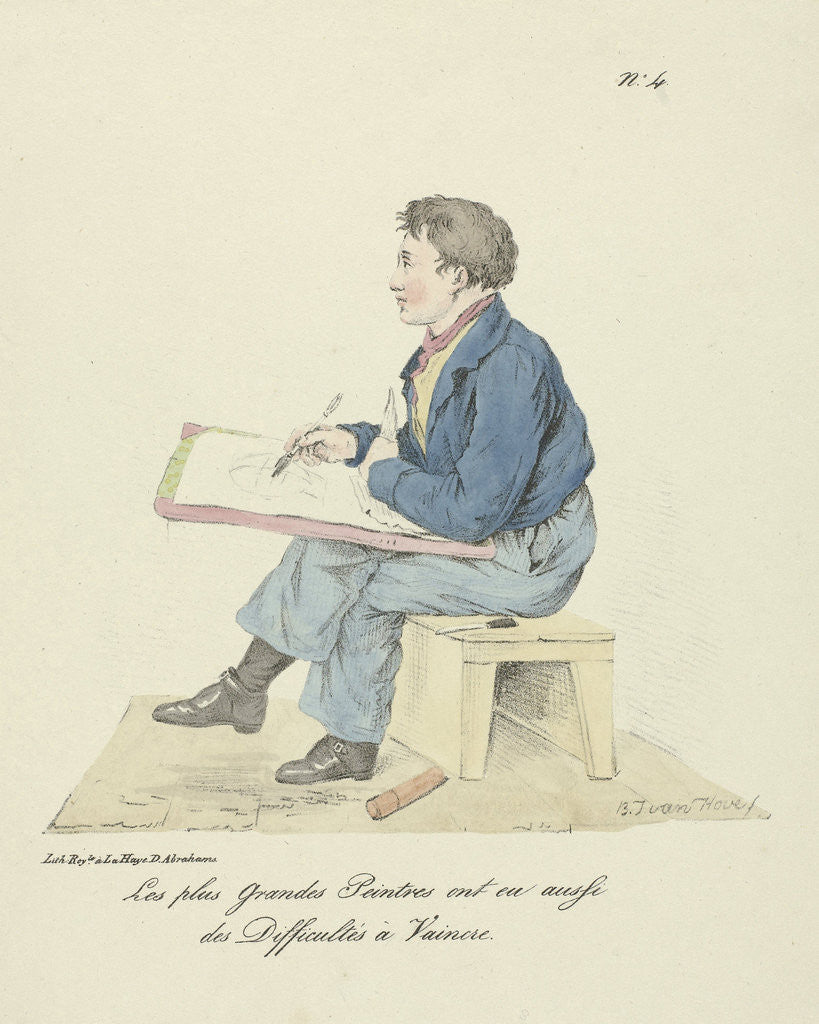 N.º 4.
B. J van Hove f
Lith. Royle à La Haye D. Abrahams.
Les plus Grandes Peintres ont eu aussi
des Difficultés à Vaincre.